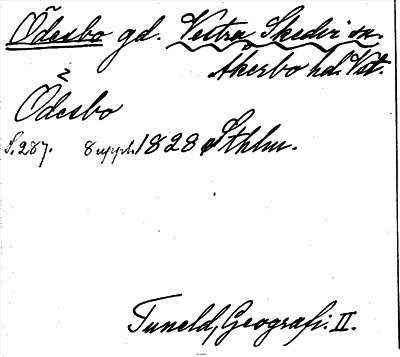 Ödesbo gd. Vestra Skedvi sn.
Åkerbo hd. Vstm.
Ödesbo
S. 287. 8 uppl. 1828 Sthlm.
Tuneld, Geografi. II.